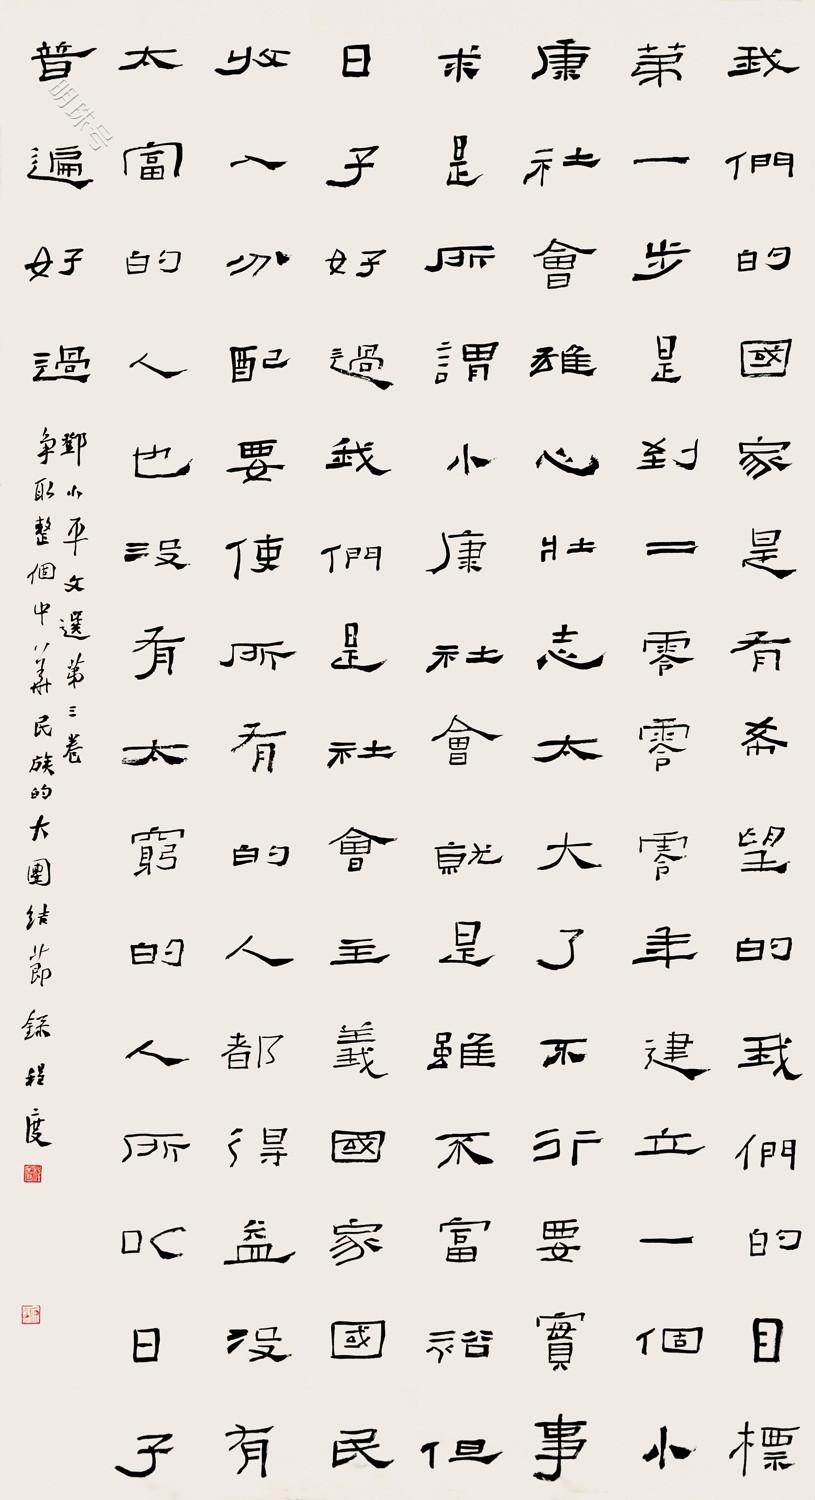 我們的國家是有希望的我們的目標
第一步是到二零零零年建立一個小
康社會雄心壯志太大了不行要實事
求是所謂小康社會就是雖不富裕但
日子好過我們是社會主義國家國民
收入分配要使所有的人都得益没有
太富的人也没有太窮的人所以日子
普遍好過
鄧小平文選第三卷
爭取整個中華民族的大團結節録程度
明珠号